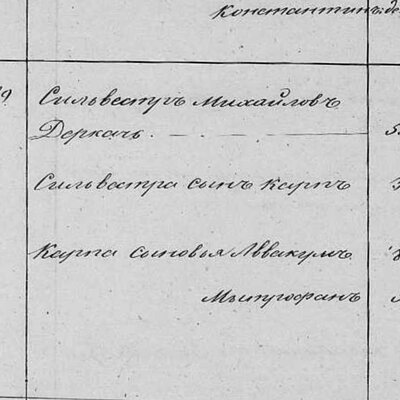 Константинъ
Сильвестръ Михайловъ
Деркачь.
Сильвестра сынъ Карпъ
Карпа сыновья Аввакумъ
Митрофанъ